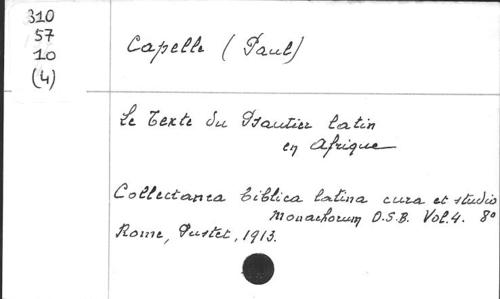 310
57
10
(4)
Capelle (Paul)
Le Texte du Psautier latin
en Afrique
Collectanea biblica latina cura et studio
Monachorum O.S.B. Vol. 4. 8°
Rome, Pustet, 1913.